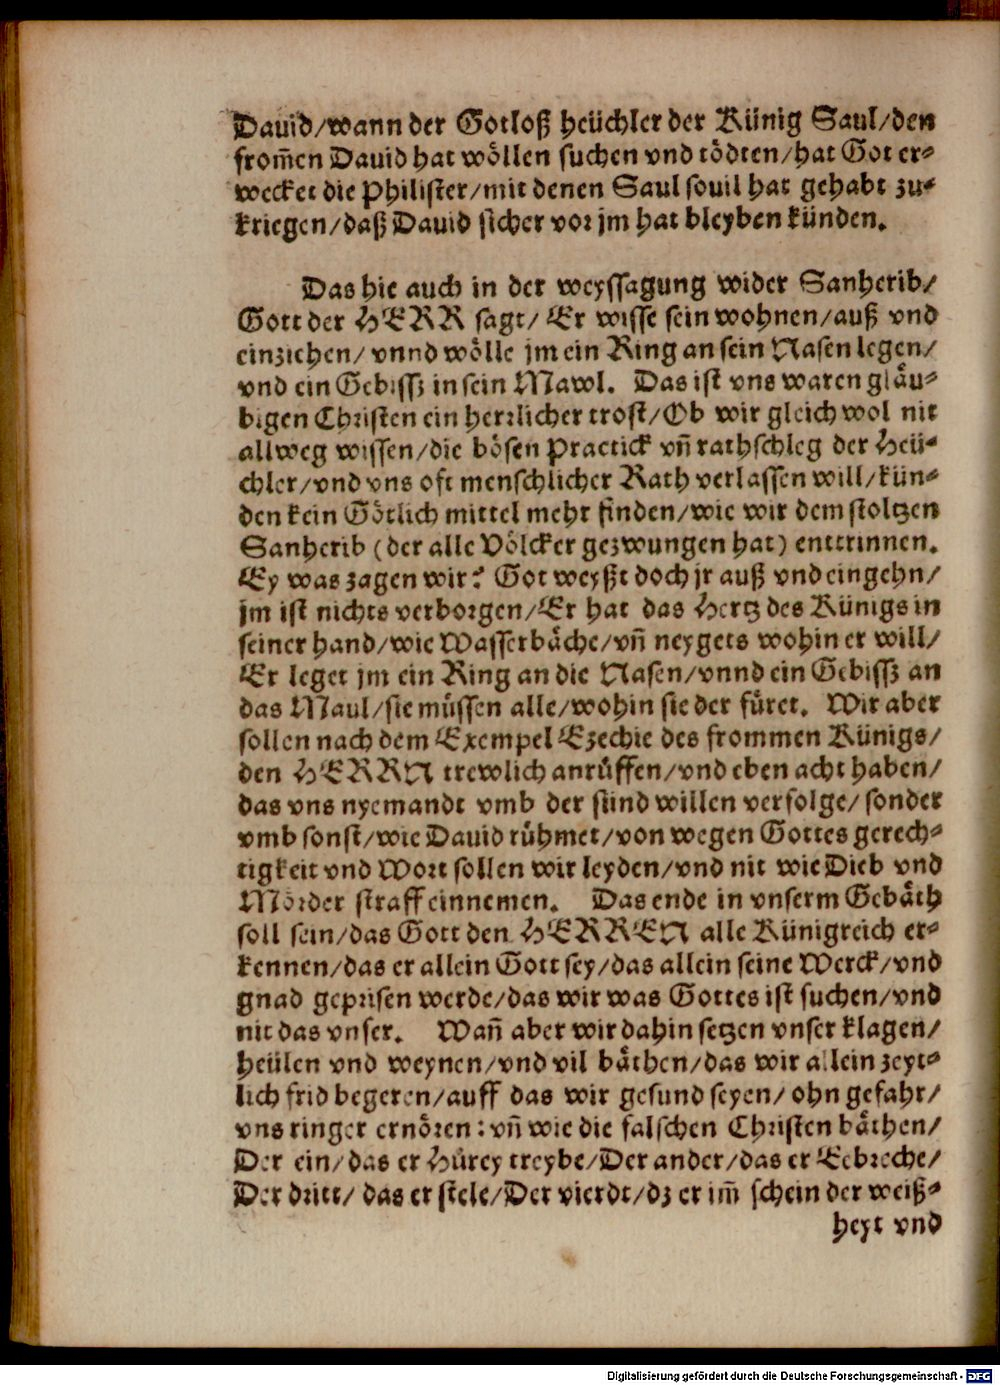 Dauid/wann der Gotloß heüchler der Künig Saul/den
from̃en Dauid hat wöllen suchen vnd tödten/hat Got er⸗
wecket die Philister/mit denen Saul souil hat gehabt zu⸗
kriegen/daß Dauid sicher vor jm hat bleyben künden.
Das hie auch in der weyssagung wider Sanherib/
Gott der HERR sagt/ Er wisse sein wohnen/auß vnd
einziehen/ vnnd wölle jm ein Ring an sein Nasen legen/
vnd ein Gebissz in sein Mawl. Das ist vns waren gläu⸗
bigen Christen ein herrlicher trost/Ob wir gleich wol nit
allweg wissen/die bösen Practick vñ rathschleg der Heü⸗
chler/vnd vns oft menschlicher Rath verlassen will/kün⸗
den kein Götlich mittel mehr finden/wie wir dem stoltzen
Sanherib (der alle Völcker gezwungen hat) enttrinnen.
Ey was zagen wir? Got weyßt doch jr auß vnd eingehn/
jm ist nichts verborgen/Er hat das Hertz des Künigs in
seiner hand/wie Wasserbäche/vñ neygets wohin er will/
Er leget jm ein Ring an die Nasen/vnnd ein Gebissz an
das Maul/sie müssen alle/wohin sie der füret. Wir aber
sollen nach dem Exempel Ezechie des frommen Künigs/
den HERRN trewlich anrüffen/vnd eben acht haben/
das vns nyemandt vmb der sünd willen verfolge/ sonder
vmb sonst/wie Dauid rühmet/von wegen Gottes gerech⸗
tigkeit vnd Wort sollen wir leyden/vnd nit wie Dieb vnd
Mörder straff einnemen. Das ende in vnserm Gebäth
soll sein/das Gott den HERREN alle Künigreich er⸗
kennen/das er allein Gott sey/das allein seine Werck/vnd
gnad geprisen werde/das wir was Gottes ist suchen/vnd
nit das vnser. Wañ aber wir dahin setzen vnser klagen/
heülen vnd weynen/vnd vil bäthen/das wir allein zeyt⸗
lich frid begeren/auff das wir gesund seyen/ ohn gefahr/
vns ringer ernören: vñ wie die falschen Christen bäthen/
Der ein/das er Hürey treybe/Der ander/das er Eebreche/
Der dritt/ das er stele/Der vierdt/dz er im̃ schein der weiß⸗
heyt vnd
Digitalisierung gefördert durch die Deutsche Forschungsgemeinschaft - DFG